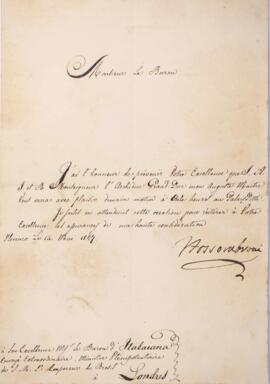 Monsieur le Baron
J'ai l'honneur de prévenir Votre Excellence que S. A.
I. et R. Monseigneur l'Archiduc Grand Duc mon Auguste Maître
Vous verra avec plaisir demain matin à heures au Palais Pitti.
Je saisis en attendant cette occasion pour réitérer à Votre
Excellence les assurances de ma haute considération
Florence le 14
à Son Excellence Mr. le Baron d'Itabaiana
Envoyé Extraordinaire, Ministre Plénipotentiaire
de S. M. l'Empereur du Brésil
Londres